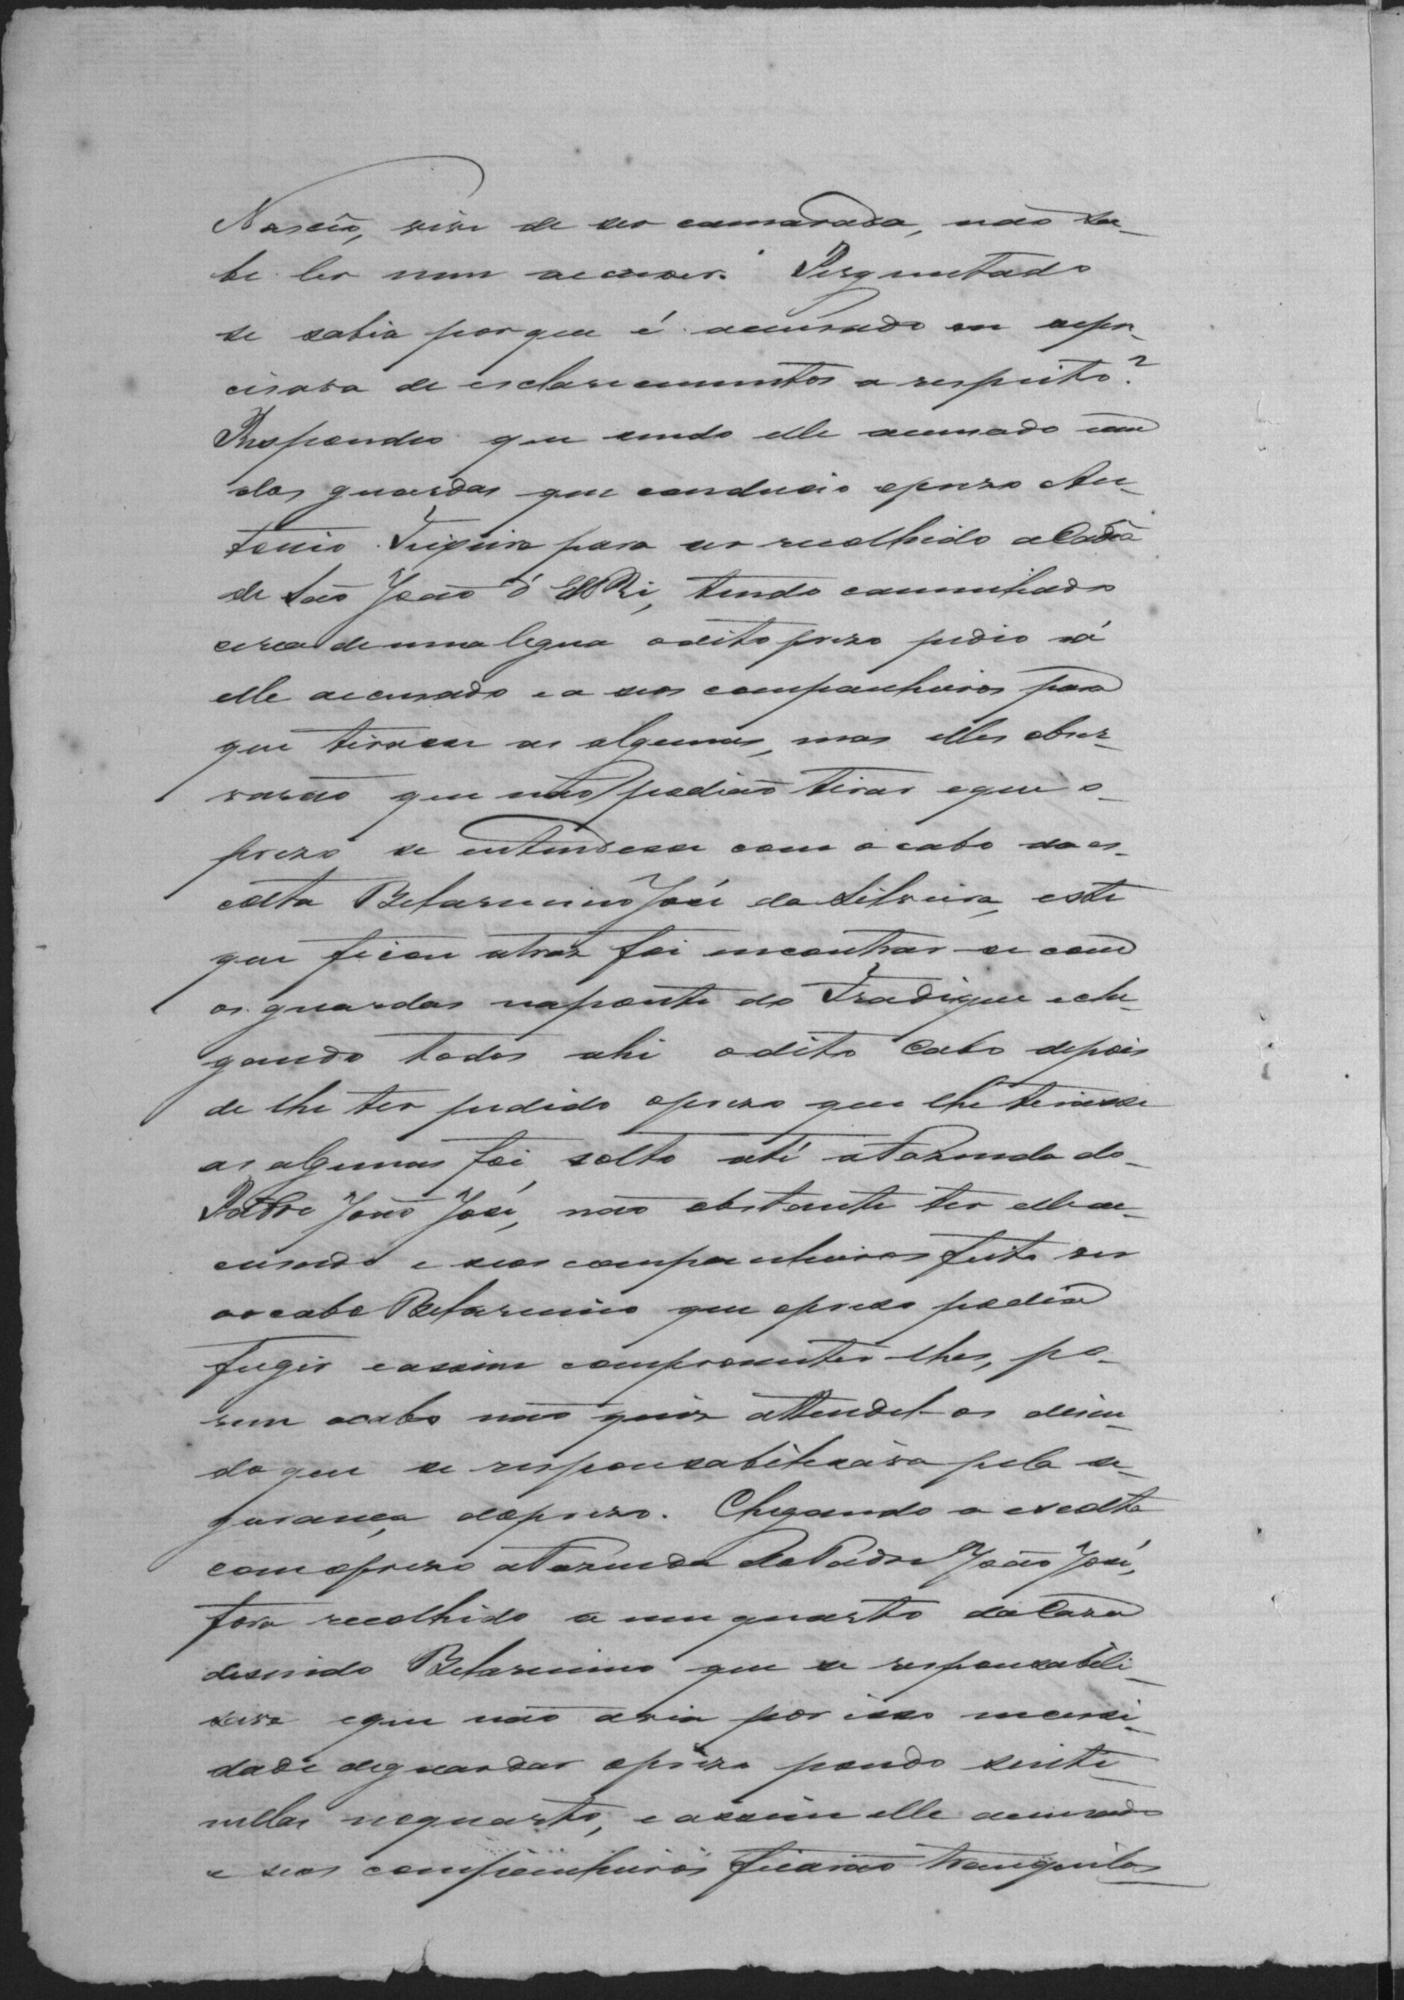 Nasceo, vive de ser camarada, não sa-
be ler nem escrever. Perguntado
se sabia porque é accusado ou a per-
cisava de esclarecimentos a respeito?
Respondeo que sendo elle accusado um
dos guardas que conduzio o prezo An-
tonio Teixeira para ser recolhido a Cadêa
de São João d'El Rei, tendo caminhado
cerca de uma legua o dito prezo pedio á
elle accusado e a seos companheiros para
que tirasse as algemas, mas elles obser-
varão que não podião tirar e que o
prezo se entendesse com o cabo da es-
colta Belarmino José da Silveira, este
que ficou atraz foi encontrar-se com
os guardas na ponte do Fradique e che-
gando todos ahi o dito Cabo depois
de lhe ter pedido o prezo que lhe tirasse
as algemas foi solto até a Fazenda do
Padre João José, não obstante ter elle ac-
cusado e seos companheiros feito ver
ao cabo Belarmino que o prezo podia
fugir e assim comprometer-lhes, po-
rem o cabo não quiz attendel-os dicen-
do que se responsabilisava pela se-
gurança do prezo. Chegando a escolta
com o prezo a Fazenda do Padre João José,
fora recolhido a um quarto da Caza
disendo Belarmino que se responsabili-
sava e que não avia por isso necessi-
dade de guardar o prezo pondo sinti-
nellas no quarto, e assim elle accusado
e seos companheiros ficarão tranquilos